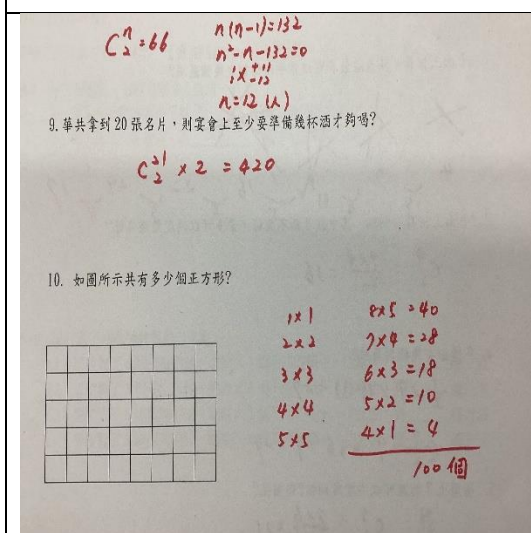 C₂ⁿ=66
n(n-1)=132
n²-n-132=0
1 +11
1 -12
n=12 (人)
9.華共拿到20張名片,則宴會上至少要準備幾杯酒才夠喝?
C₂²¹ × 2 = 420
10. 如圖所示共有多少個正方形?
1×1 8×5 = 40
2×2 7×4 = 28
3×3 6×3 = 18
4×4 5×2 = 10
5×5 4×1 = 4
100個